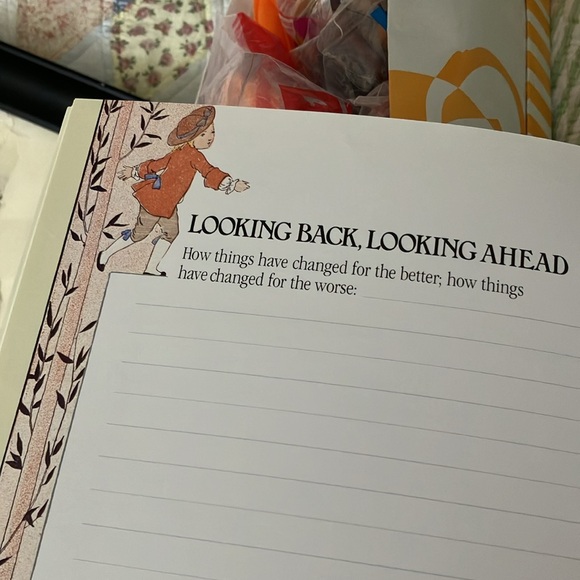 LOOKING BACK, LOOKING AHEAD
How things have changed for the better; how things
have changed for the worse: